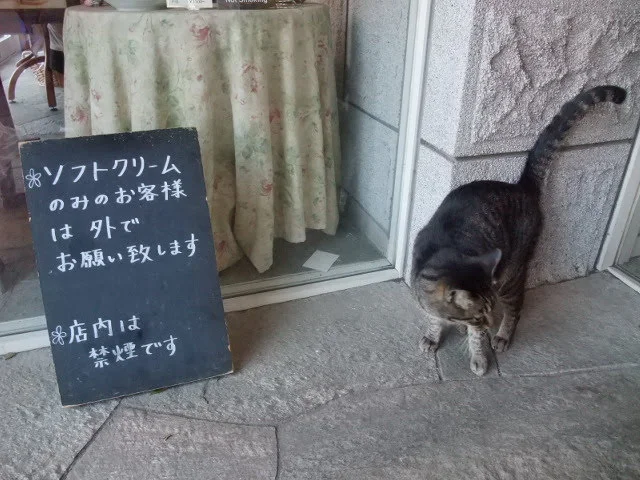 Not Smoking
ソフトクリーム
のみのお客様
は 外で
お願い致します
店内は
禁煙です